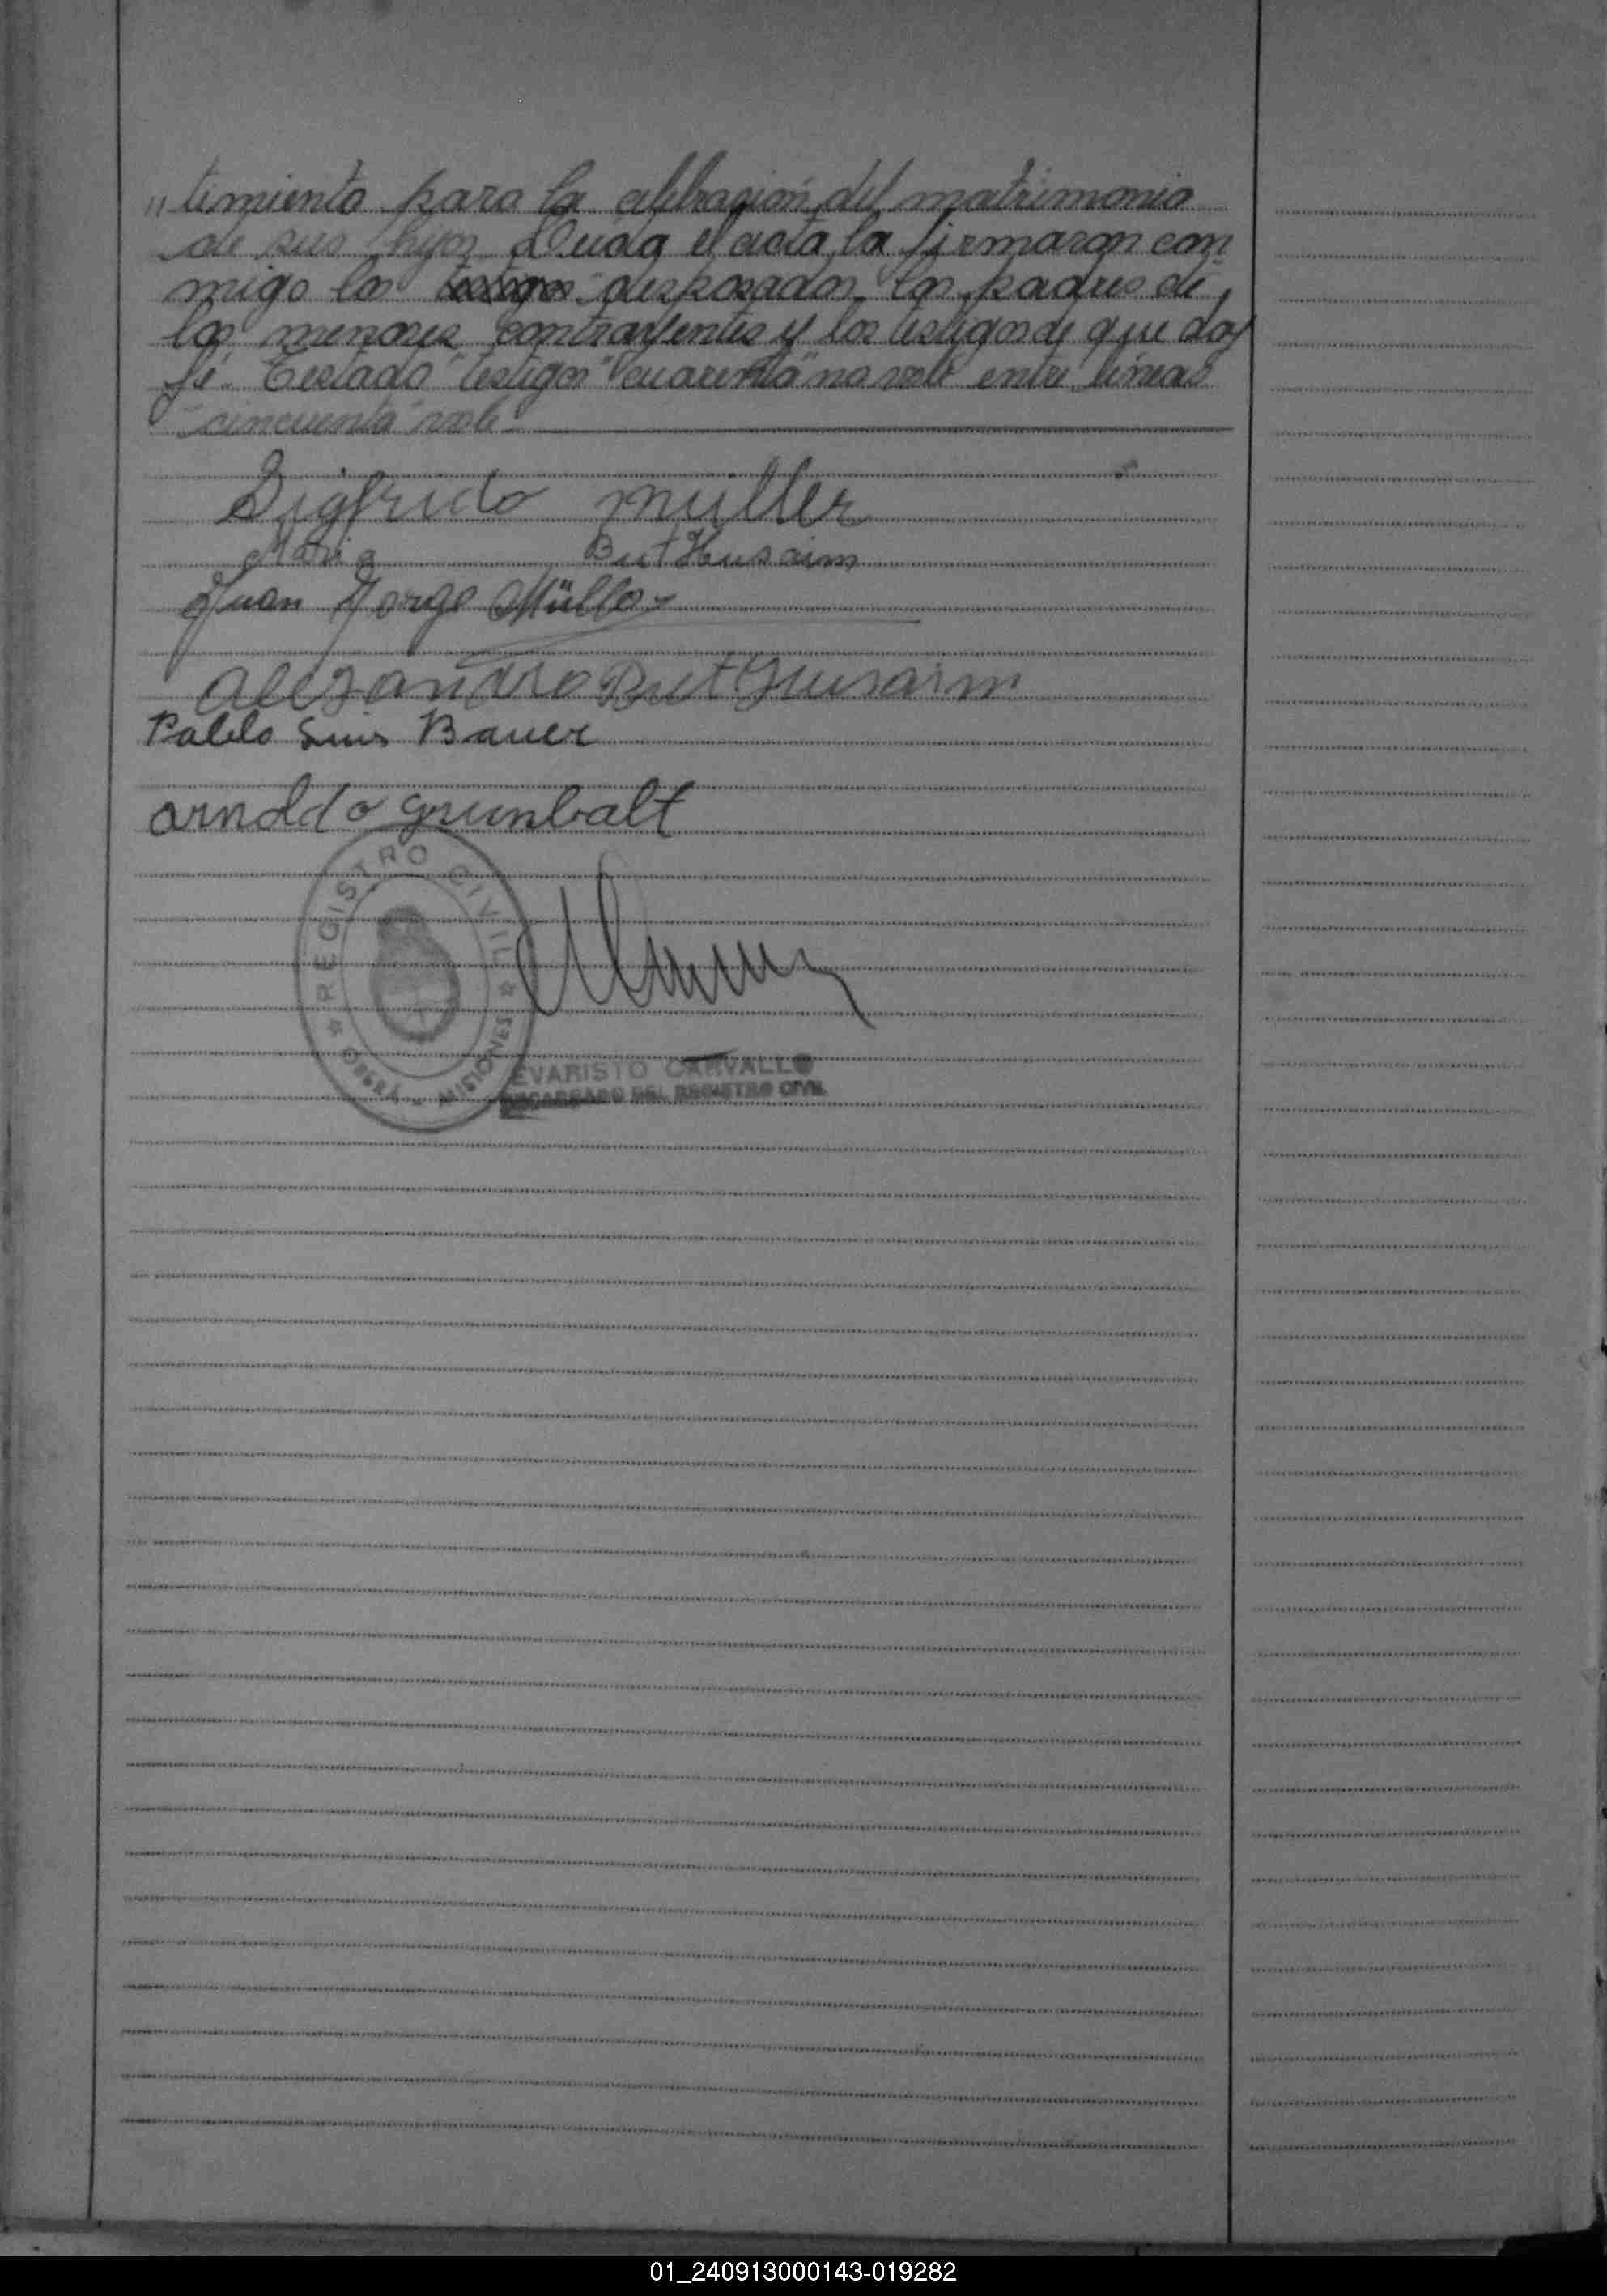 "timiento para la celebración del matrimonio
de sus hijos. Leida el acta, la firmaron con
migo los testigos desposados, los padres de
los menores contrayentes y los testigos de que doy
fé. Testado "testigos" "cuarenta" no vale entre líneas
"cincuenta" vale
Sigfrido Müller
Maria But Husaim
Juan Jorge Müller
Alejandro But Gusaim
Pablo Luis Bauer
Arnoldo Grunbalt
REGISTRO CIVIL
OBERÁ - MISIONES
EVARISTO CARVALLO
ENCARGADO DEL REGISTRO CIVIL
01_240913000143-019282